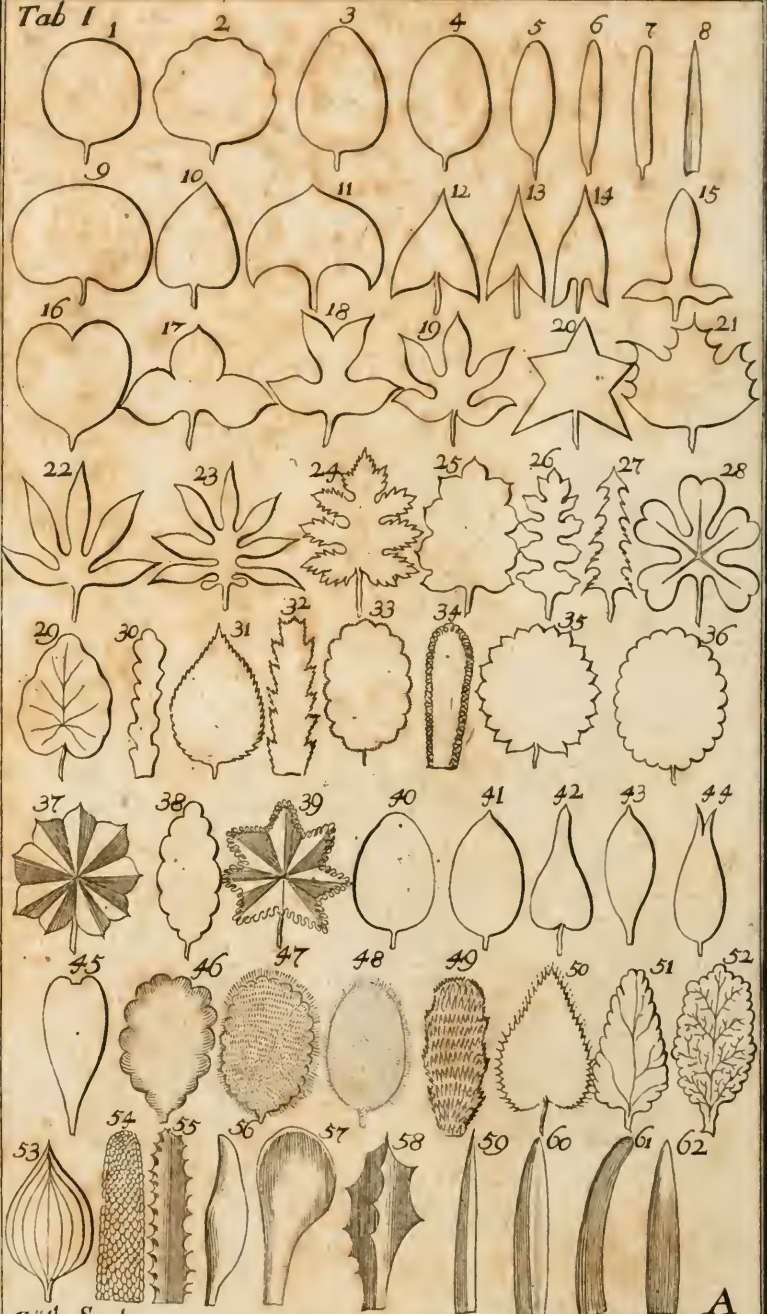 Tab I
1 2 3 4 5 6 7 8
9 10 11 12 13 14 15
16 17 18 19 20 21
22 23 24 25 26 27 28
29 30 31 32 33 34 35 36
37 38 39 40 41 42 43 44
45 46 47 48 49 50 51 52
53 54 55 56 57 58 59 60 61 62
A